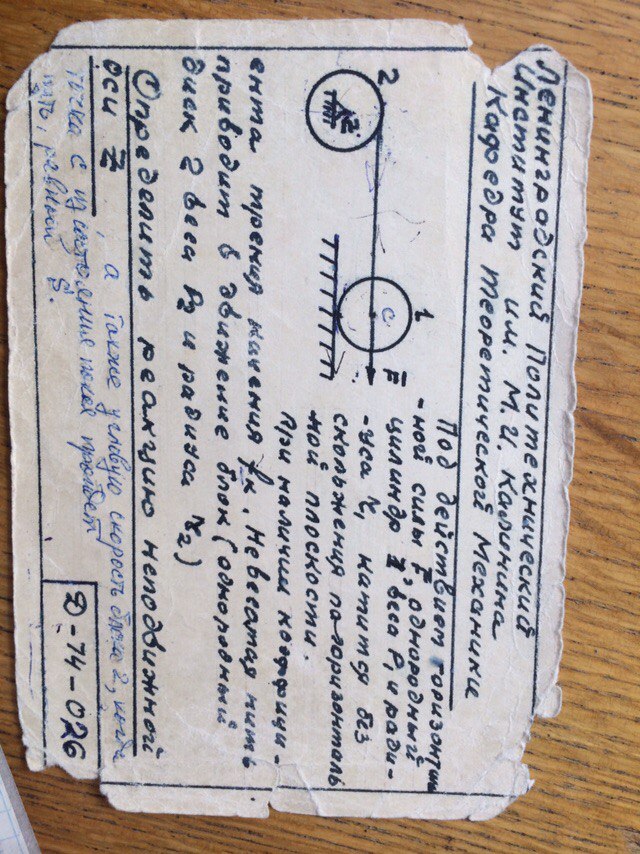 Ленинградский Политехнический
Институт им. М.И. Калинина
Кафедра Теоретической Механики
Под действием горизонталь
-ной силы F, однородный
цилиндр 1 веса P₁ и ради-
-уса r₁ катится без
скольжения по горизонталь
ной плоскости.
При наличии коэффици-
ента трения качения fк. Невесомая нить
приводит в движение блок (однородный
диск 2 веса P₂ и радиуса r₂)
Определить реакцию неподвижной
оси Z
, а также угловую скорость блока 2, когда
точка C из положения покоя пройдет
путь, равный S.
Д-74-026
2
Z
1
C
F